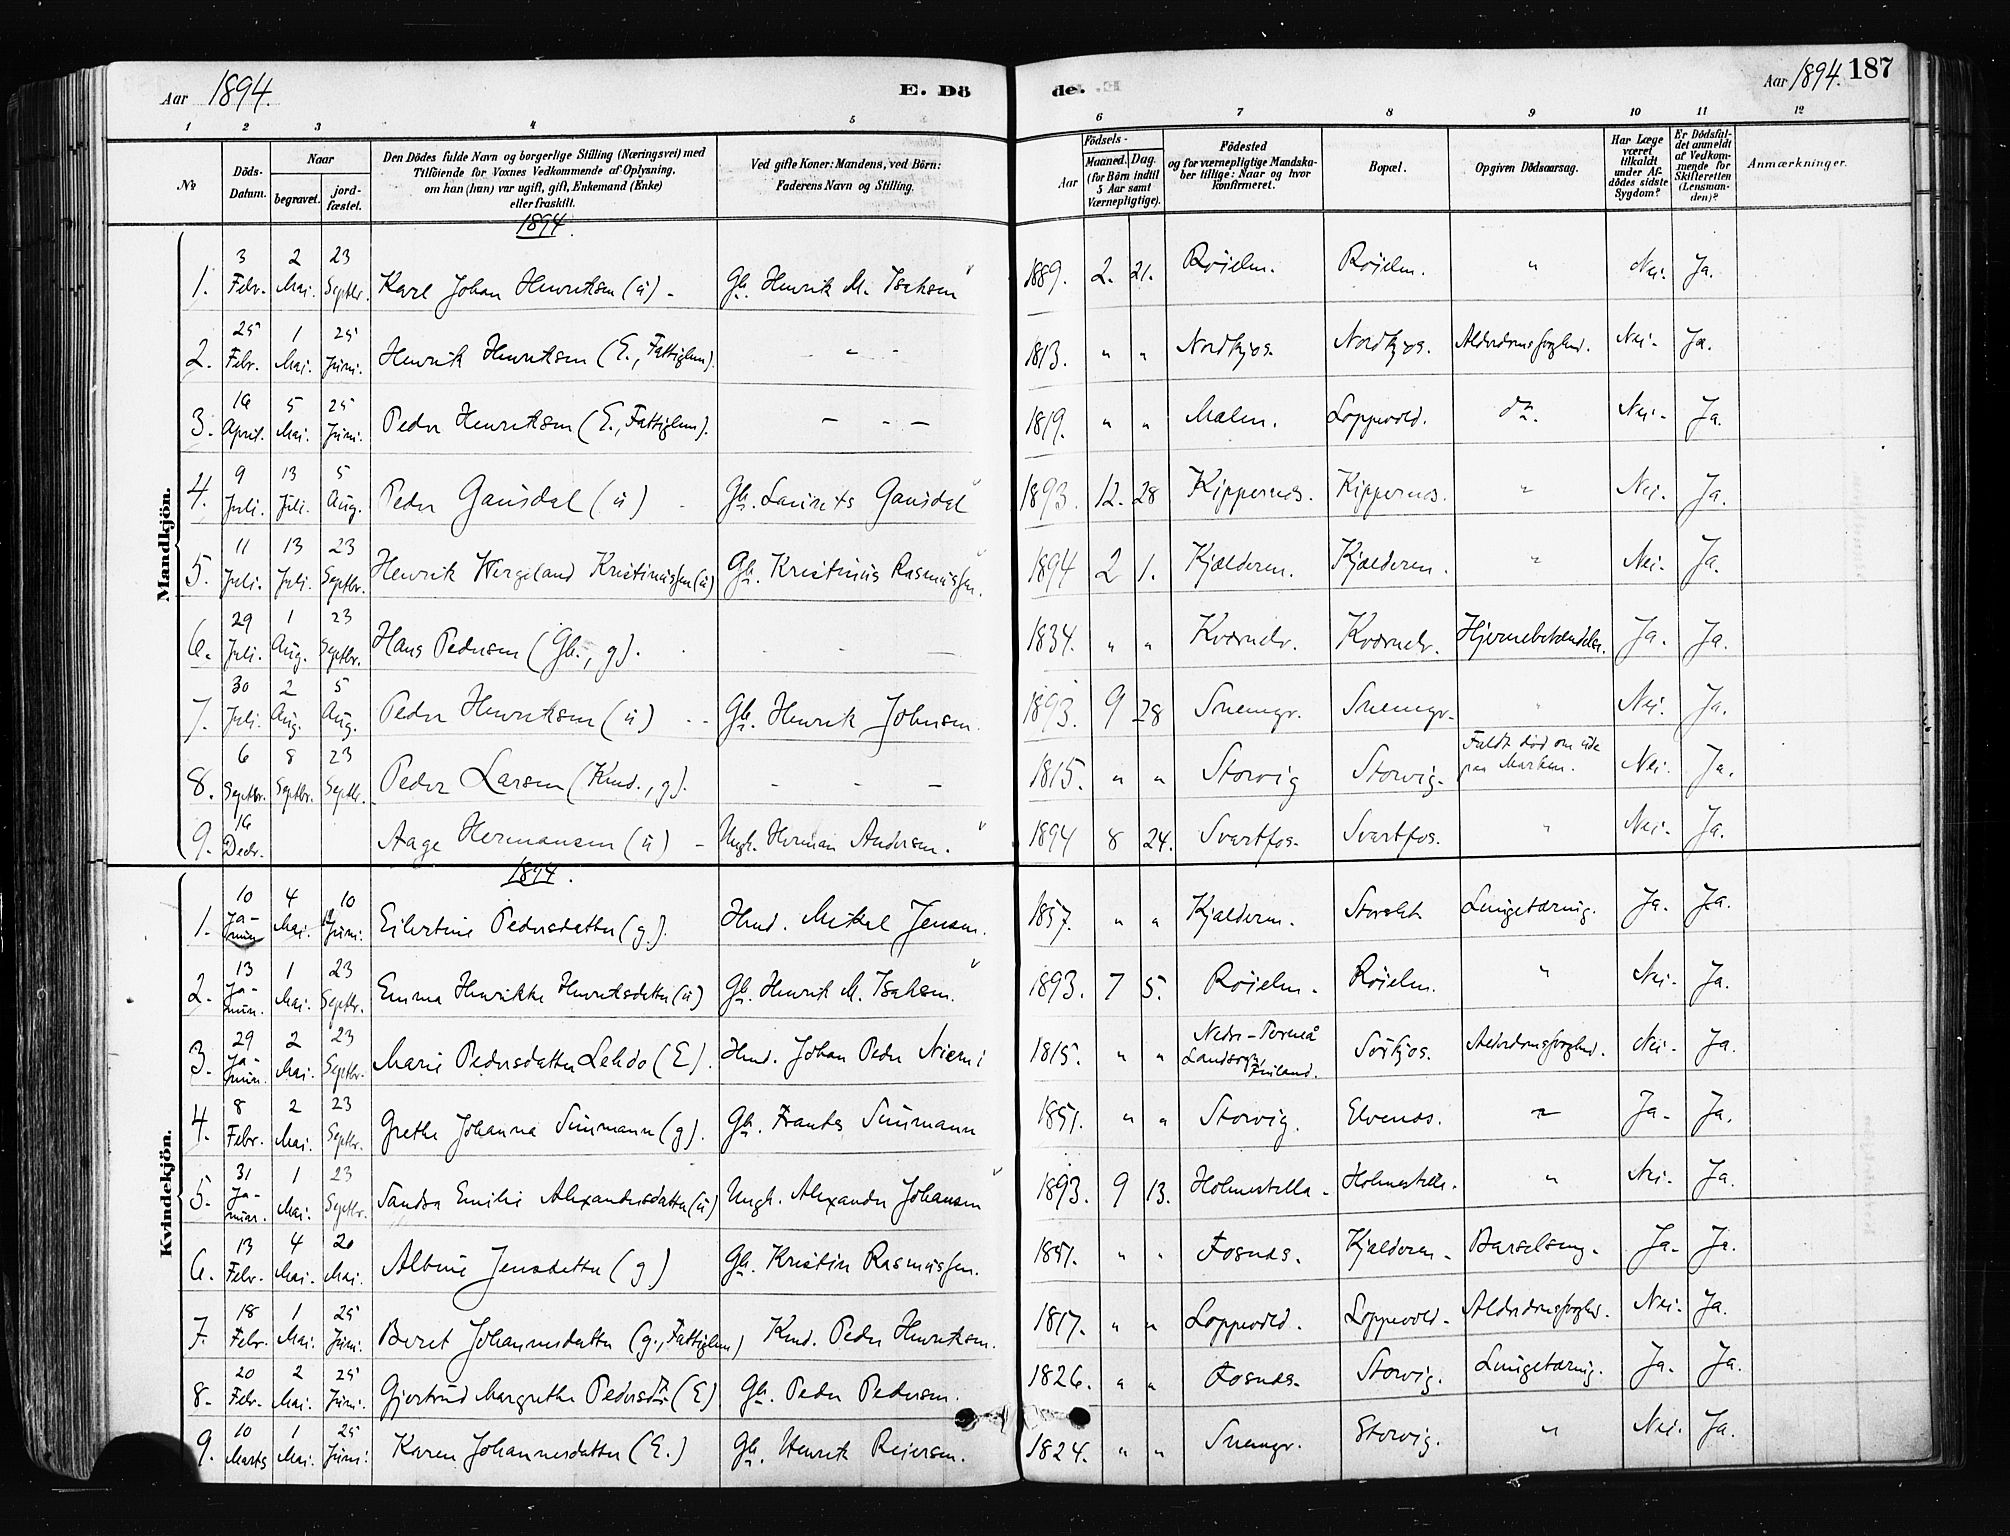 Aar 1894.
E. Dö
de.
Aar 1894. 187
1 2 3 4 5 6 7 8 9 10 11 12
№
Döds-Datum.
Naar
begravet.
jordfæstet.
Den Dödes fulde Navn og borgerlige Stilling (Næringsvei) med
Tilföiende for Voxnes Vedkommende af Oplysning,
om han (hun) var ugift, gift, Enkemand (Enke)
eller fraskilt.
Ved gifte Koner: Mandens, ved Börn:
Faderens Navn og Stilling.
Födsels-
Aar
Maaned. Dag.
(for Börn indtil
5 Aar samt
Værnepligtige).
Födested
og for værnepligtige Mandskaber tillige: Naar og hvor
konfirmeret.
Bopæl.
Opgiven Dödsaarsag.
Har Læge
været
tilkaldt
under Afdödes sidste
Sygdom?
Er Dödsfaldet anmeldt
af Vedkommende for
Skifteretten
(Lensmanden)?
Anmærkninger.
Mandkjön.
1894.
1. 3 Febr. 2 Mai. 23 Septbr. Karl Johan Henriksen (u) - Gb. Henrik M. Isaksen 1889. 2. 21. Röielm. Röielm. " Nei. Ja.
2. 25 Febr. 1 Mai. 25 Juni. Henrik Henriksen (E., Fattiglem). - " - 1813. " " Nordkjos. Nordkjos. Alderdomssvaghed. Nei. Ja.
3. 16 April. 5 Mai. 25 Juni. Peder Henriksen (E., Fattiglem). - - - 1819. " " Malen. Loppevold. do. Nei. Ja.
4. 9 Juli. 13 Juli. 5 Aug. Peder Gausdal (u) Gb. Laurits Gausdal 1893. 12. 28 Kippernes. Kippernes. " Nei. Ja.
5. 11 Juli. 13 Juli. 23 Septbr. Henrik Wergeland Kristinussen (u) Gb. Kristinus Rasmussen. 1894 2 1. Kjælderen. Kjælderen. " Nei. Ja.
6. 29 Juli. 1 Aug. 23 Septbr. Hans Pedersen (Gb., g). - - - 1834. " " Kværnelv. Kværnelv. Hjernebetændelse. Ja. Ja.
7. 30 Juli. 2 Aug. 5 Aug. Peder Henriksen (u) - - Gb. Henrik Johnsen. 1893. 9 28 Snemgr. Snemgr. " Nei. Ja.
8. 6 Septbr. 8 Septbr. 23 Septbr. Peder Larsen (Kmd., g). - - - 1815. " " Storvig Storvig. Faldt död om ude paa Marken. Nei. Ja.
9. 16 Decbr. Aage Hermansen (u) - Ungk. Herman Andersen. 1894 8 24. Svartfos. Svartfos. " Nei. Ja.
Kvindekjön.
1894.
1. 10 Januar 4 Mai. 10 Juni. Eilertine Pedersdatter (g). Hmd. Mikal Jensen. 1857. " " Kjælderen. Storslet. Lungetæring. Ja. Ja.
2. 13 Januar. 1 Mai. 23 Septbr. Emma Henrikke Henriksdatter (u) Gb. Henrik M. Isaksen. 1893. 7 5. Röielm. Röielm. " Nei. Ja.
3. 29 Januar. 2 Mai. 23 Septbr. Marie Pedersdatter Lehdo (E). Hmd. Johan Peder Niemi 1815. " " Neder-Torneå Landsogn, Finland. Sörkjos. Alderdomssvaghed. Nei. Ja.
4. 8 Febr. 2 Mai. 23 Septbr. Grethe Johanna (g). Gb. 1851. " " Storvig. Elvenes. Ja. Ja.
5. 31 Januar. 1 Mai. 23 Septbr. Sandra Emilie Alexandersdatter (u) Ungk. Alexander Johansen 1893. 9 13. Holmestilla. Holmestilla. " Nei. Ja.
6. 13 Febr. 4 Mai. 20 Mai. Albine Jensdatter (g) Gb. Kristin Rasmussen. 1851. " " Fosnes. Kjælderen. Barselseng. Ja. Ja.
7. 18 Febr. 1 Mai. 25 Juni. Beret Johannesdatter (g., Fattiglem) Kmd. Peder Henriksen. 1817. " " Loppevold. Loppevold. Alderdomssvaghed. Nei. Ja.
8. 20 Febr. 2 Mai. 25 Juni. Gjertrud Margrethe Pedersdr. (E) Gb. Peder Pedersen. 1826. " " Fosnes. Storvig. Lungetæring. Ja. Ja.
9. 10 Marts 1 Mai. 25 Juni. Karen Johannesdatter (E.) Gb. Henrik Reiersen. 1824. " " Snemgr. Storvig. " Nei. Ja.